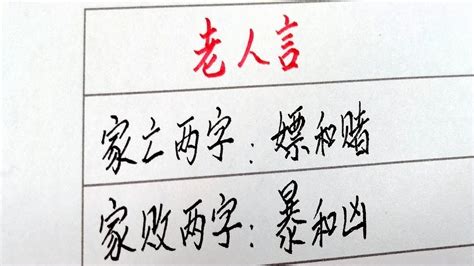 老人言
家亡两字：嫖和赌
家败两字：暴和凶